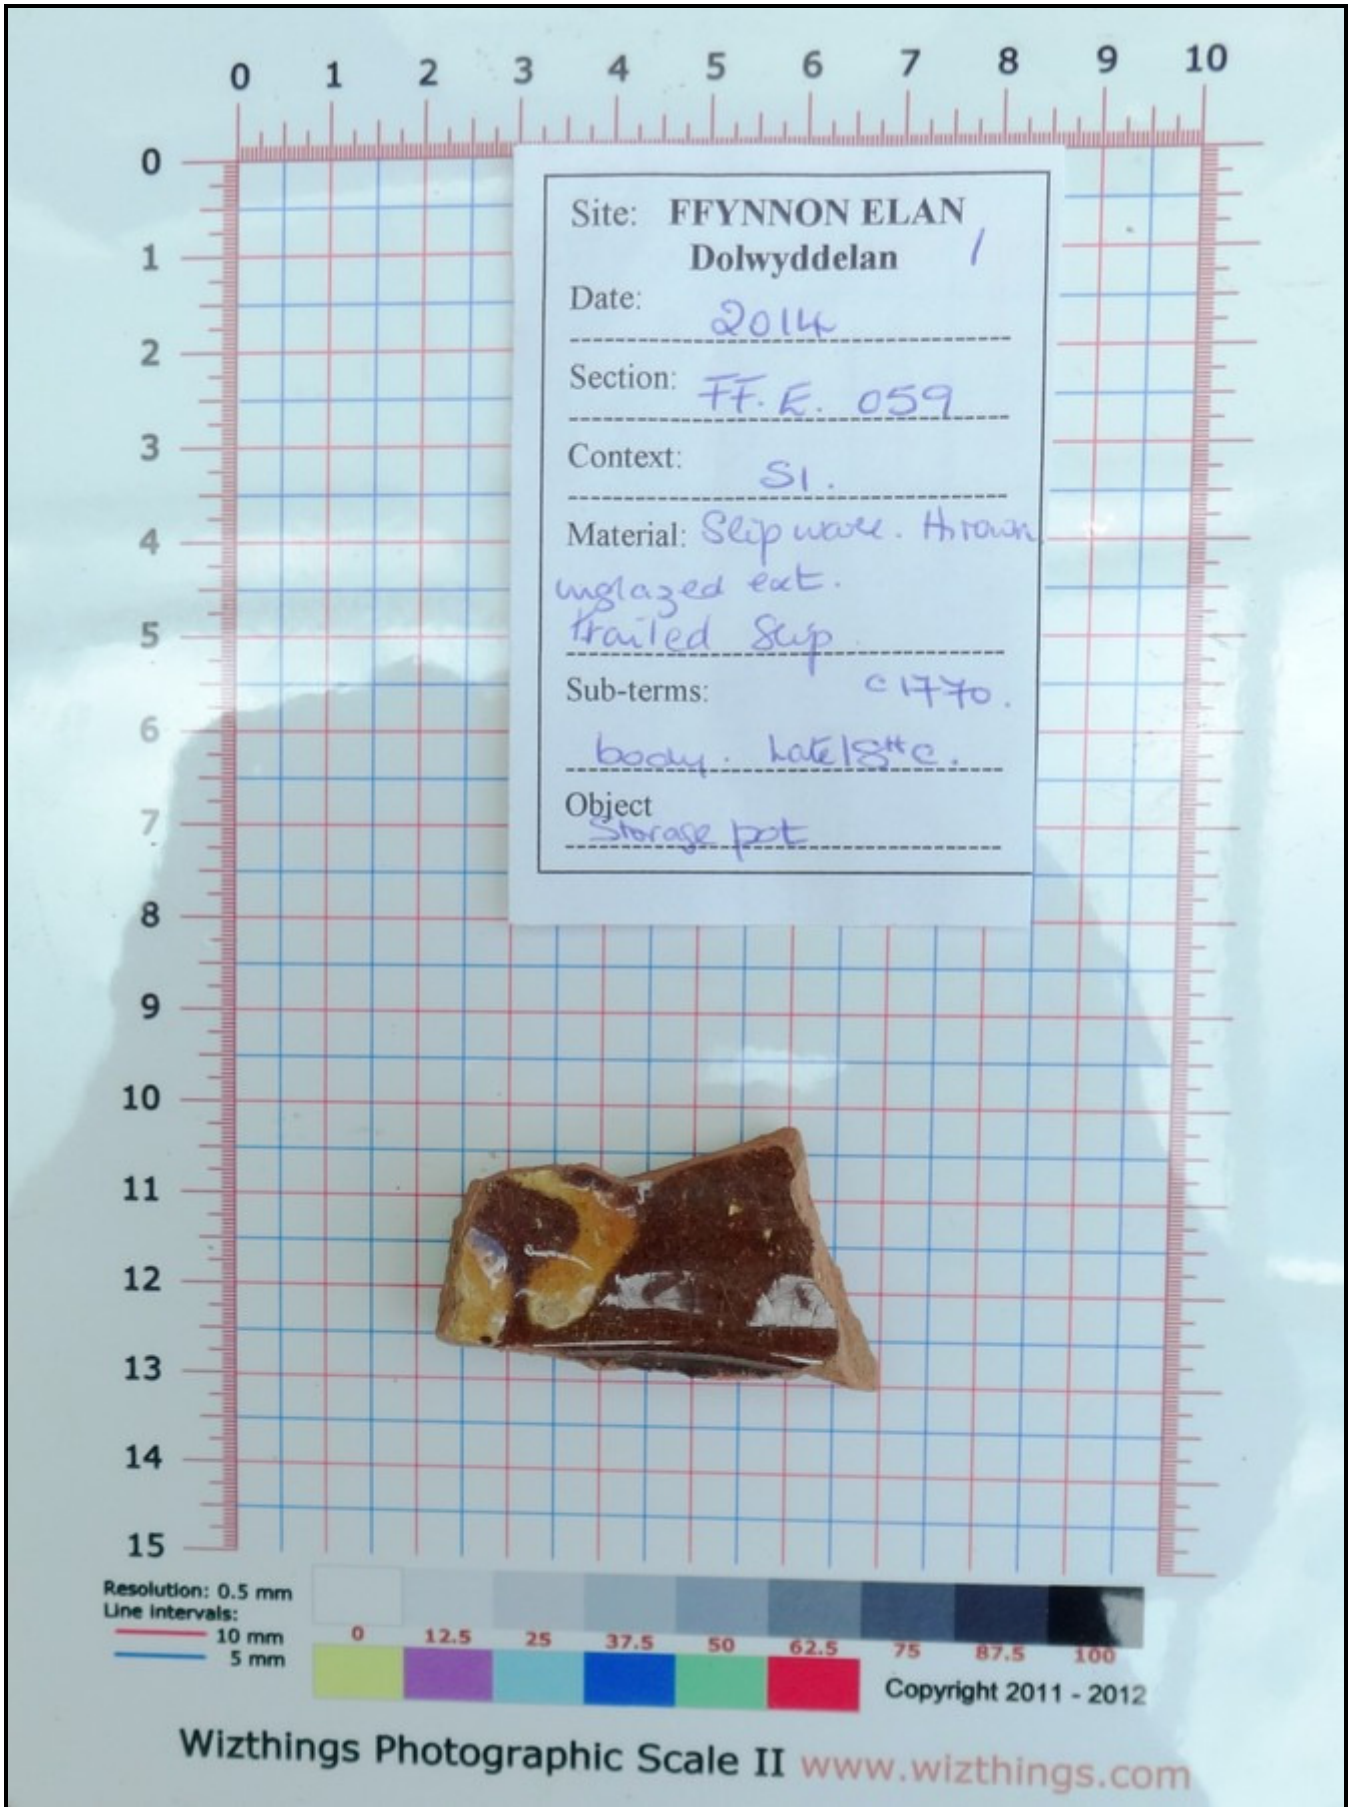 0 1 2 3 4 5 6 7 8 9 10
0
1
2
3
4
5
6
7
8
9
10
11
12
13
14
15
Site: FFYNNON ELAN
Dolwyddelan 1
Date: 2014
Section: FF. E. 059
Context: S1.
Material: Slip ware. Thrown
unglazed ext.
trailed slip
Sub-terms: c 1770.
body. Late 18th c.
Object
Storage pot
Resolution: 0.5 mm
Line intervals:
10 mm
5 mm
0 12.5 25 37.5 50 62.5 75 87.5 100
Copyright 2011 - 2012
Wizthings Photographic Scale II www.wizthings.com